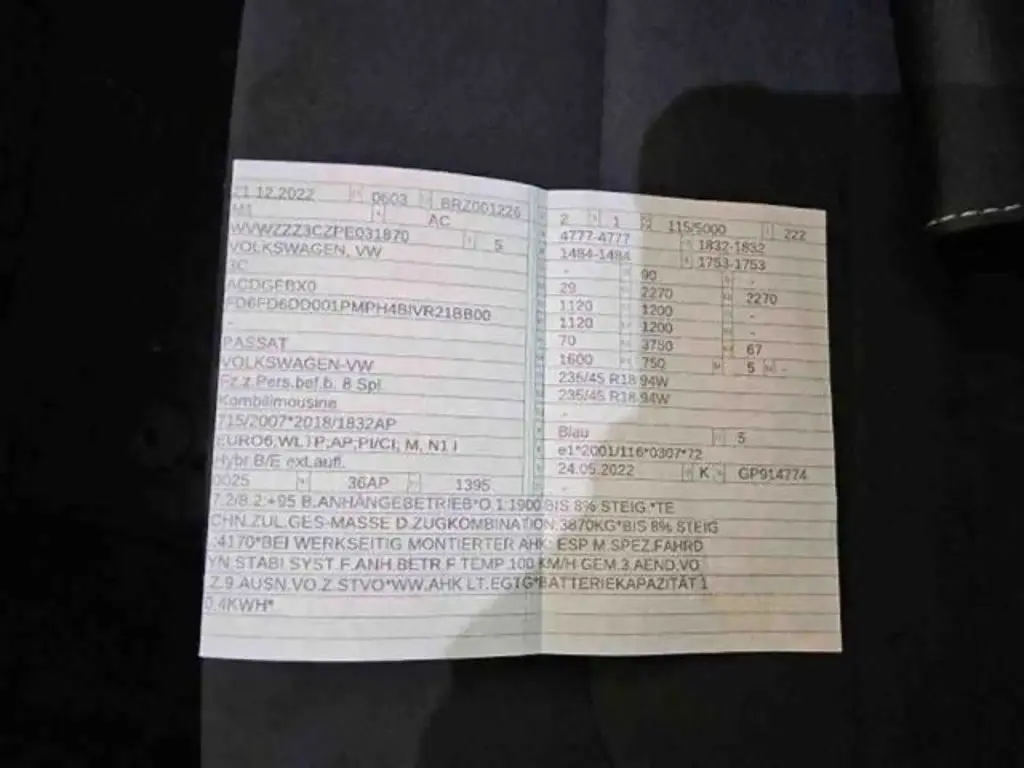 21.12.2022 0603 BRZ001226
M1 AC
WVWZZZ3CZPE031870 5
VOLKSWAGEN, VW
3C
ACDGEBX0
FD6FD6DD001PMPH4BIVR21BB00
-
PASSAT
VOLKSWAGEN-VW
Fz.z.Pers.bef.b. 8 Spl.
Kombilimousine
715/2007*2018/1832AP
EURO6,WLTP,AP,PI/CI, M, N1 I
Hybr.B/E ext.aufl.
0025 36AP 1395
2 1 115/5000 222
4777-4777 1832-1832
1484-1484 1753-1753
- 90 -
29 2270 2270
1120 1200 -
1120 1200 -
70 3750 67
1600 750 5 -
235/45 R18 94W
235/45 R18 94W
-
Blau 5
e1*2001/116*0307*72
24.05.2022 K GP914774
-
7.2/8.2:+95 B.ANHÄNGEBETRIEB*O.1:1900 BIS 8% STEIG.*TE
CHN.ZUL.GES-MASSE D.ZUGKOMBINATION 3870KG*BIS 8% STEIG
.:4170*BEI WERKSEITIG MONTIERTER AHK: ESP M.SPEZ.FAHRD
YN.STABI.SYST.F.ANH.BETR.F.TEMP.100 KM/H GEM.3.AEND.VO
.Z.9.AUSN.VO.Z.STVO*WW.AHK LT.EGTG*BATTERIEKAPAZITÄT:1
0,4KWH*